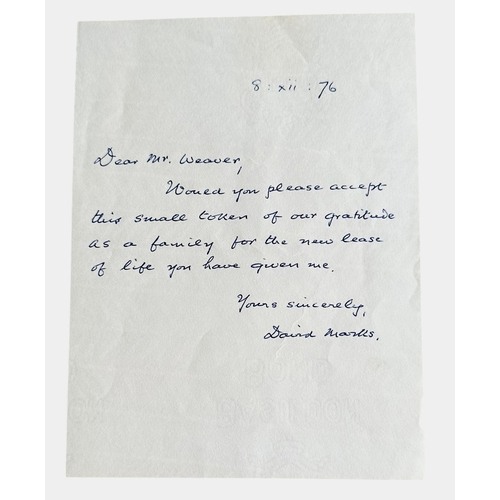 8 : xii : 76
Dear Mr. Weaver,
Would you please accept
this small token of our gratitude
as a family for the new lease
of life you have given me.
Yours sincerely,
David Marks.